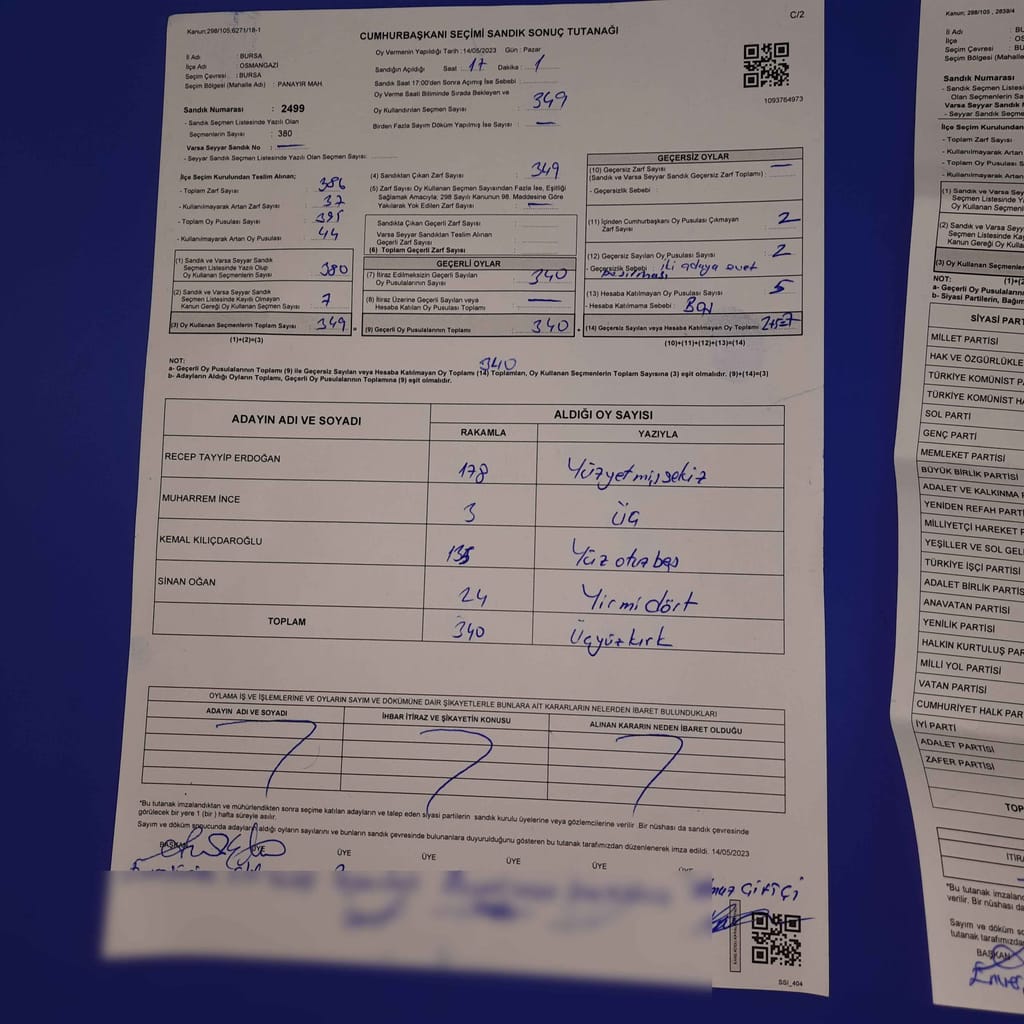 Kanun;298/105,6271/18-1
C/2
CUMHURBAŞKANI SEÇİMİ SANDIK SONUÇ TUTANAĞI
İl Adı : BURSA
İlçe Adı : OSMANGAZİ
Seçim Çevresi : BURSA
Seçim Bölgesi (Mahalle Adı) : PANAYIR MAH
Sandık Numarası : 2499
- Sandık Seçmen Listesinde Yazılı Olan
Seçmenlerin Sayısı : 380
Varsa Seyyar Sandık No :
- Seyyar Sandık Seçmen Listesinde Yazılı Olan Seçmen Sayısı
Oy Vermenin Yapıldığı Tarih : 14/05/2023 Gün : Pazar
Sandığın Açıldığı Saat : 17 Dakika : 1
Sandık Saat 17:00'den Sonra Açımış İse Sebebi :
Oy Verme Saati Bitiminde Sırada Bekleyen ve
Oy Kullandırılan Seçmen Sayısı : 349
Birden Fazla Sayım Döküm Yapılmış İse Sayısı : —
1093764973
İlçe Seçim Kurulundan Teslim Alınan;
- Toplam Zarf Sayısı : 386
- Kullanılmayarak Artan Zarf Sayısı : 37
- Toplam Oy Pusulası Sayısı : 395
- Kullanılmayarak Artan Oy Pusulası : 44
(1) Sandık ve Varsa Seyyar Sandık
Seçmen Listesinde Yazılı Olup
Oy Kullanan Seçmenlerin Sayısı : 380
(2) Sandık ve Varsa Seyyar Sandık
Seçmen Listesinde Kaydı Olmayan
Kanun Gereği Oy Kullanan Seçmen Sayısı : 7
(3) Oy Kullanan Seçmenlerin Toplam Sayısı : 349 =
(1)+(2)=(3)
(4) Sandıktan Çıkan Zarf Sayısı : 349
(5) Zarf Sayısı Oy Kullanan Seçmen Sayısından Fazla İse, Eşitliği
Sağlamak Amacıyla, 298 Sayılı Kanunun 98. Maddesine Göre
Yakılarak Yok Edilen Zarf Sayısı : —
Sandıkta Çıkan Geçerli Zarf Sayısı
Varsa Seyyar Sandıktan Teslim Alınan
Geçerli Zarf Sayısı
(6) Toplam Geçerli Zarf Sayısı
GEÇERLİ OYLAR
(7) İtiraz Edilmeksizin Geçerli Sayılan
Oy Pusulalarının Toplamı : 340
(8) İtiraz Üzerine Geçerli Sayılan veya
Hesaba Katılan Oy Pusulası Toplamı : —
(9) Geçerli Oy Pusulalarının Toplamı : 340 +
GEÇERSİZ OYLAR
(10) Geçersiz Zarf Sayısı
(Sandık ve Varsa Seyyar Sandık Geçersiz Zarf Toplamı) : —
- Geçersizlik Sebebi :
(11) İçinden Cumhurbaşkanı Oy Pusulası Çıkmayan
Zarf Sayısı : 2
(12) Geçersiz Sayılan Oy Pusulası Sayısı : 2
- Geçersizlik Sebebi : iki adaya evet
basılması
(13) Hesaba Katılmayan Oy Pusulası Sayısı : 5
- Hesaba Katılmama Sebebi :
(14) Geçersiz Sayılan veya Hesaba Katılmayan Oy Toplamı : 2+5=7
(10)+(11)+(12)+(13)=(14)
340
NOT:
a- Geçerli Oy Pusulalarının Toplamı (9) ile Geçersiz Sayılan veya Hesaba Katılmayan Oy Toplamı (14) Toplamları, Oy Kullanan Seçmenlerin Toplam Sayısına (3) eşit olmalıdır. (9)+(14)=(3)
b- Adayların Aldığı Oyların Toplamı, Geçerli Oy Pusulalarının Toplamına (9) eşit olmalıdır.
ADAYIN ADI VE SOYADI ALDIĞI OY SAYISI
RAKAMLA YAZIYLA
RECEP TAYYİP ERDOĞAN 178 Yüzyetmişsekiz
MUHARREM İNCE 3 üç
KEMAL KILIÇDAROĞLU 135 Yüz otuz beş
SİNAN OĞAN 24 Yirmi dört
TOPLAM 340 üçyüzkırk
OYLAMA İŞ VE İŞLEMLERİNE VE OYLARIN SAYIM VE DÖKÜMÜNE DAİR ŞİKAYETLERLE BUNLARA AİT KARARLARIN NELERDEN İBARET BULUNDUKLARI
ADAYIN ADI VE SOYADI İHBAR İTİRAZ VE ŞİKAYETİN KONUSU ALINAN KARARIN NEDEN İBARET OLDUĞU
*Bu tutanak imzalandıktan ve mühürlendikten sonra seçime katılan adayların ve talep eden siyasi partilerin sandık kurulu üyelerine veya gözlemcilerine verilir .Bir nüshası da sandık çevresinde
görülecek bir yere 1 (bir ) hafta süreyle asılır.
Sayım ve döküm sonucunda adayların aldığı oyların sayılarını ve bunların sandık çevresinde bulunanlara duyurulduğunu gösteren bu tutanak tarafımızdan düzenlenerek imza edildi. 14/05/2023
BAŞKAN ÜYE ÜYE ÜYE ÜYE ÜYE ÜYE
Çiftçi
SSI_404
Kanun; 298/105 , 2839/4
İl Adı : BU
İlçe : OS
Seçim Çevresi : BU
Seçim Bölgesi (Mahalle
Sandık Numarası
- Sandık Seçmen Listes
Olan Seçmenlerin Sayıs
Varsa Seyyar Sandık N
- Seyyar Sandık Seçmen
İlçe Seçim Kurulundan
- Toplam Zarf Sayısı
- Kullanılmayarak Artan
- Toplam Oy Pusulası S
- Kullanılmayarak Artan
(1) Sandık ve Varsa Sey
Seçmen Listesinde Y
Oy Kullanan Seçmen
(2) Sandık ve Varsa Sey
Seçmen Listesinde Ka
Kanun Gereği Oy Kull
(3) Oy Kullanan Seçmenle
(1)+(2
NOT:
a- Geçerli Oy Pusulalarını
b- Siyasi Partilerin, Bağım
SİYASİ PART
MİLLET PARTİSİ
HAK VE ÖZGÜRLÜKLE
TÜRKİYE KOMÜNİST PA
TÜRKİYE KOMÜNİST HA
SOL PARTİ
GENÇ PARTİ
MEMLEKET PARTİSİ
BÜYÜK BİRLİK PARTİSİ
ADALET VE KALKINMA P
YENİDEN REFAH PARTİ
MİLLİYETÇİ HAREKET P
YEŞİLLER VE SOL GELE
TÜRKİYE İŞÇİ PARTİSİ
ADALET BİRLİK PARTİSİ
ANAVATAN PARTİSİ
YENİLİK PARTİSİ
HALKIN KURTULUŞ PAR
MİLLİ YOL PARTİSİ
VATAN PARTİSİ
CUMHURİYET HALK PAR
İYİ PARTİ
ADALET PARTİSİ
ZAFER PARTİSİ
TOP
İTİRA
*Bu tutanak imzaland
verilir. Bir nüshası da
Sayım ve döküm so
tutanak tarafımızda
BAŞKAN